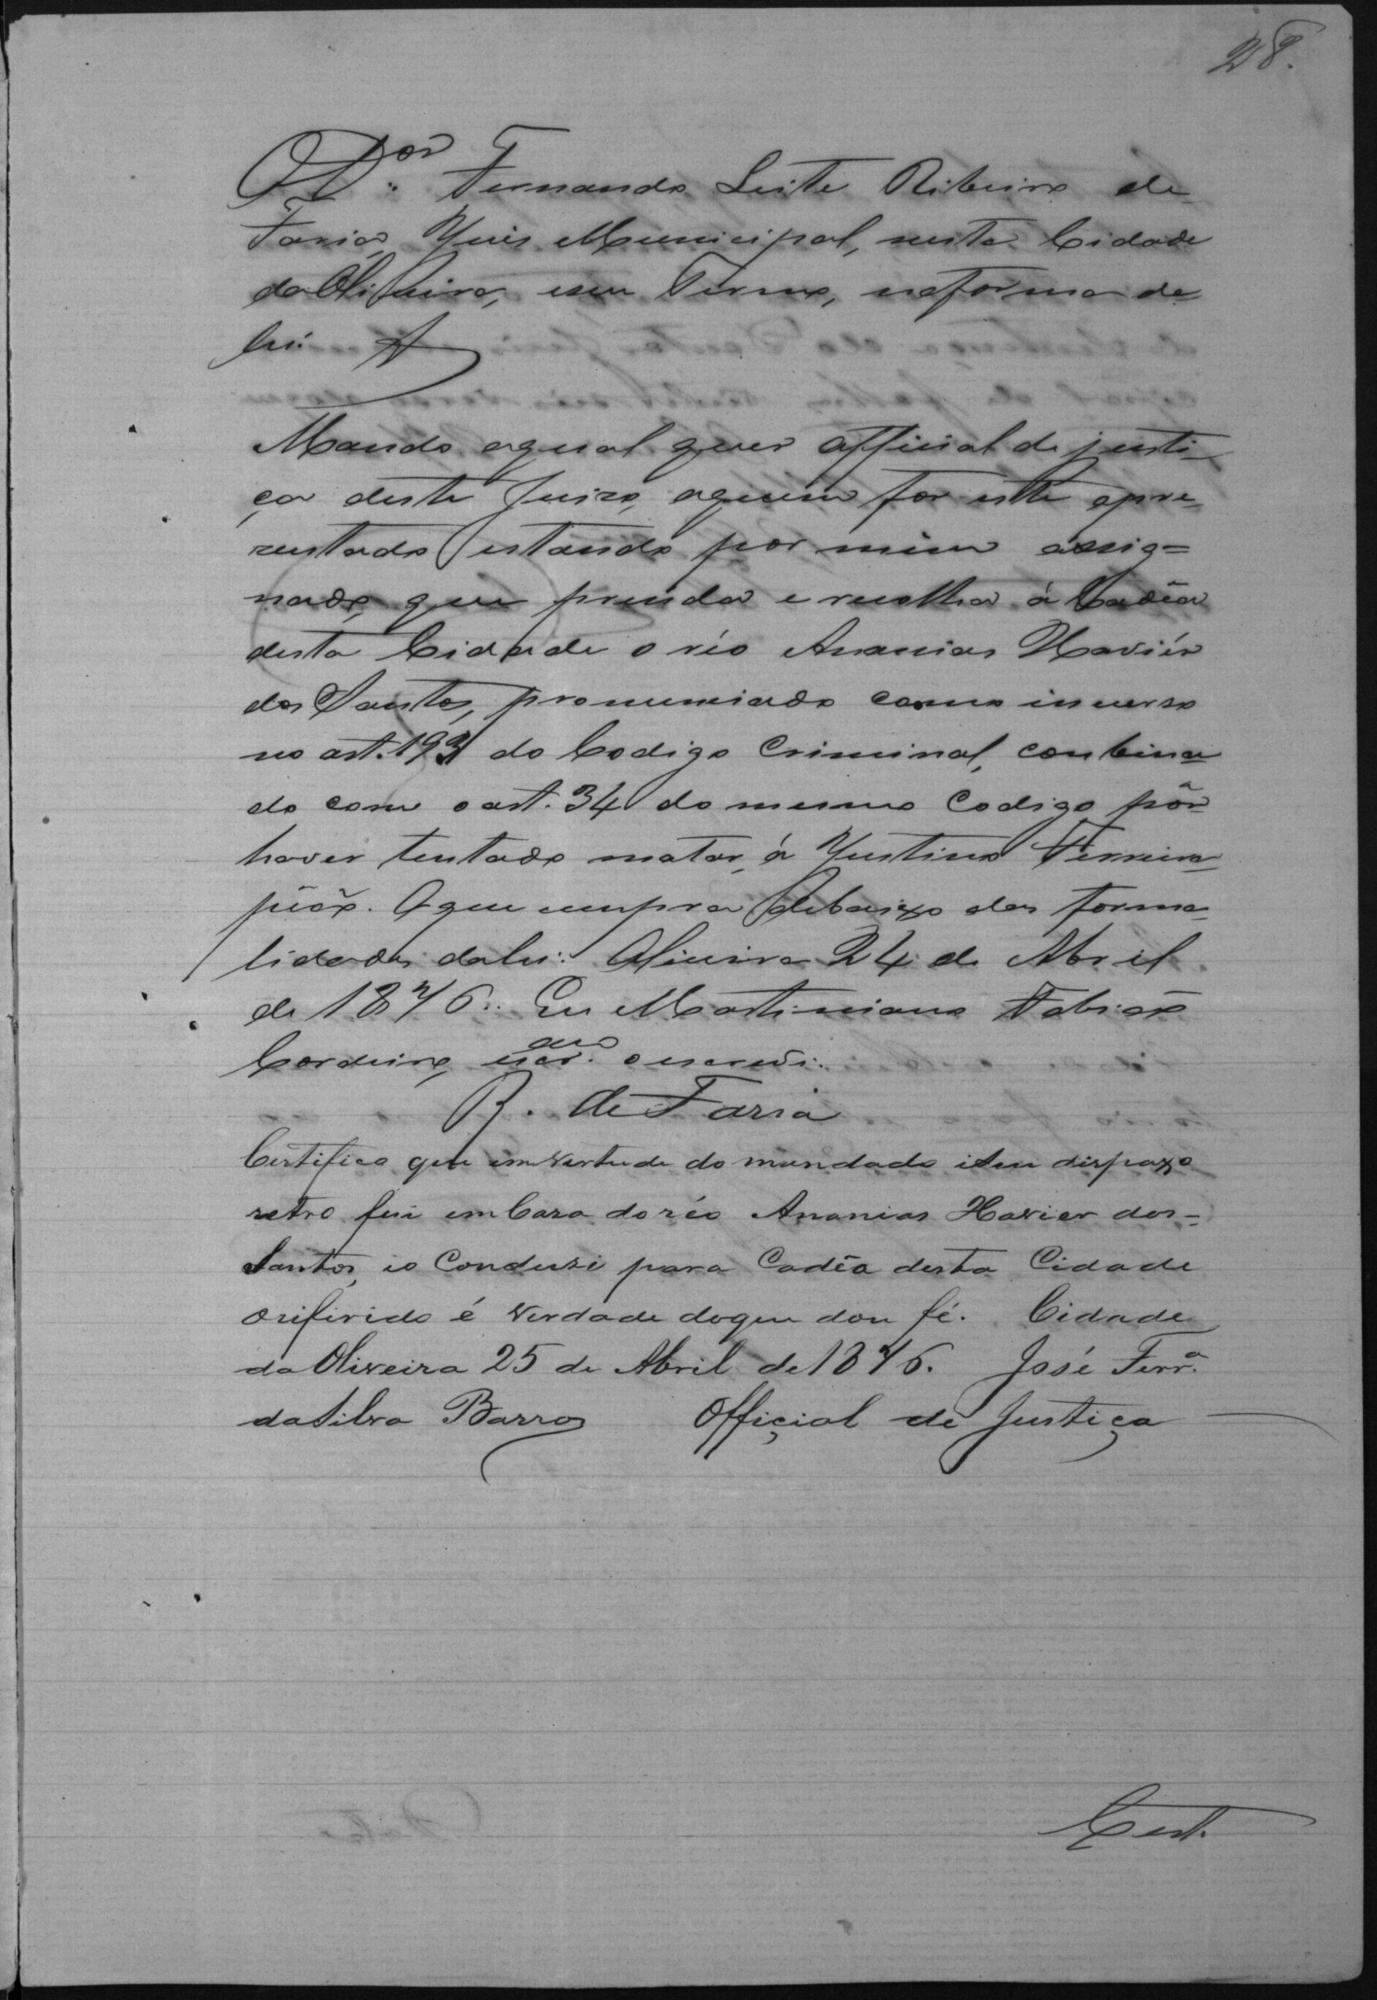 28.
O Dor. Fernando Leite Ribeiro de
Faria, Juis Municipal, nesta Cidade
da Oliveira, eseu Termo, naforma da
Lei. A
Mando aqual quer official de justi
ça deste Juizo, aquem for este apre
zentado estando por mim assig=
nado, que prenda e recolha á Cadêa
desta Cidade o réo Ananias Xaviér
dos Santos, pronunciado como incurso
no art. 193 do Codigo Criminal, conbina
do com o art. 34 do mesmo Codigo pôr
haver tentado matar, á Justino Ferreira
pião. Oque cumpra debaixo das forma
lidades dalei. Oliveira 24 de Abril
de 1876. Eu Martiniano Fabião
Cordeiro, escr.am oescrevi.
R. de Faria
Certifico que emvertude do mandado iseu dispaxo
retro fui emCaza do réo Ananias Xavier dos-
Santos, io Conduzi para Cadêa desta Cidade
oriferido é verdade doque dou fé. Cidade
da Oliveira 25 de Abril de 1876. José Ferr.a
daSilva Barros Offiçial de Justiça
Cert.